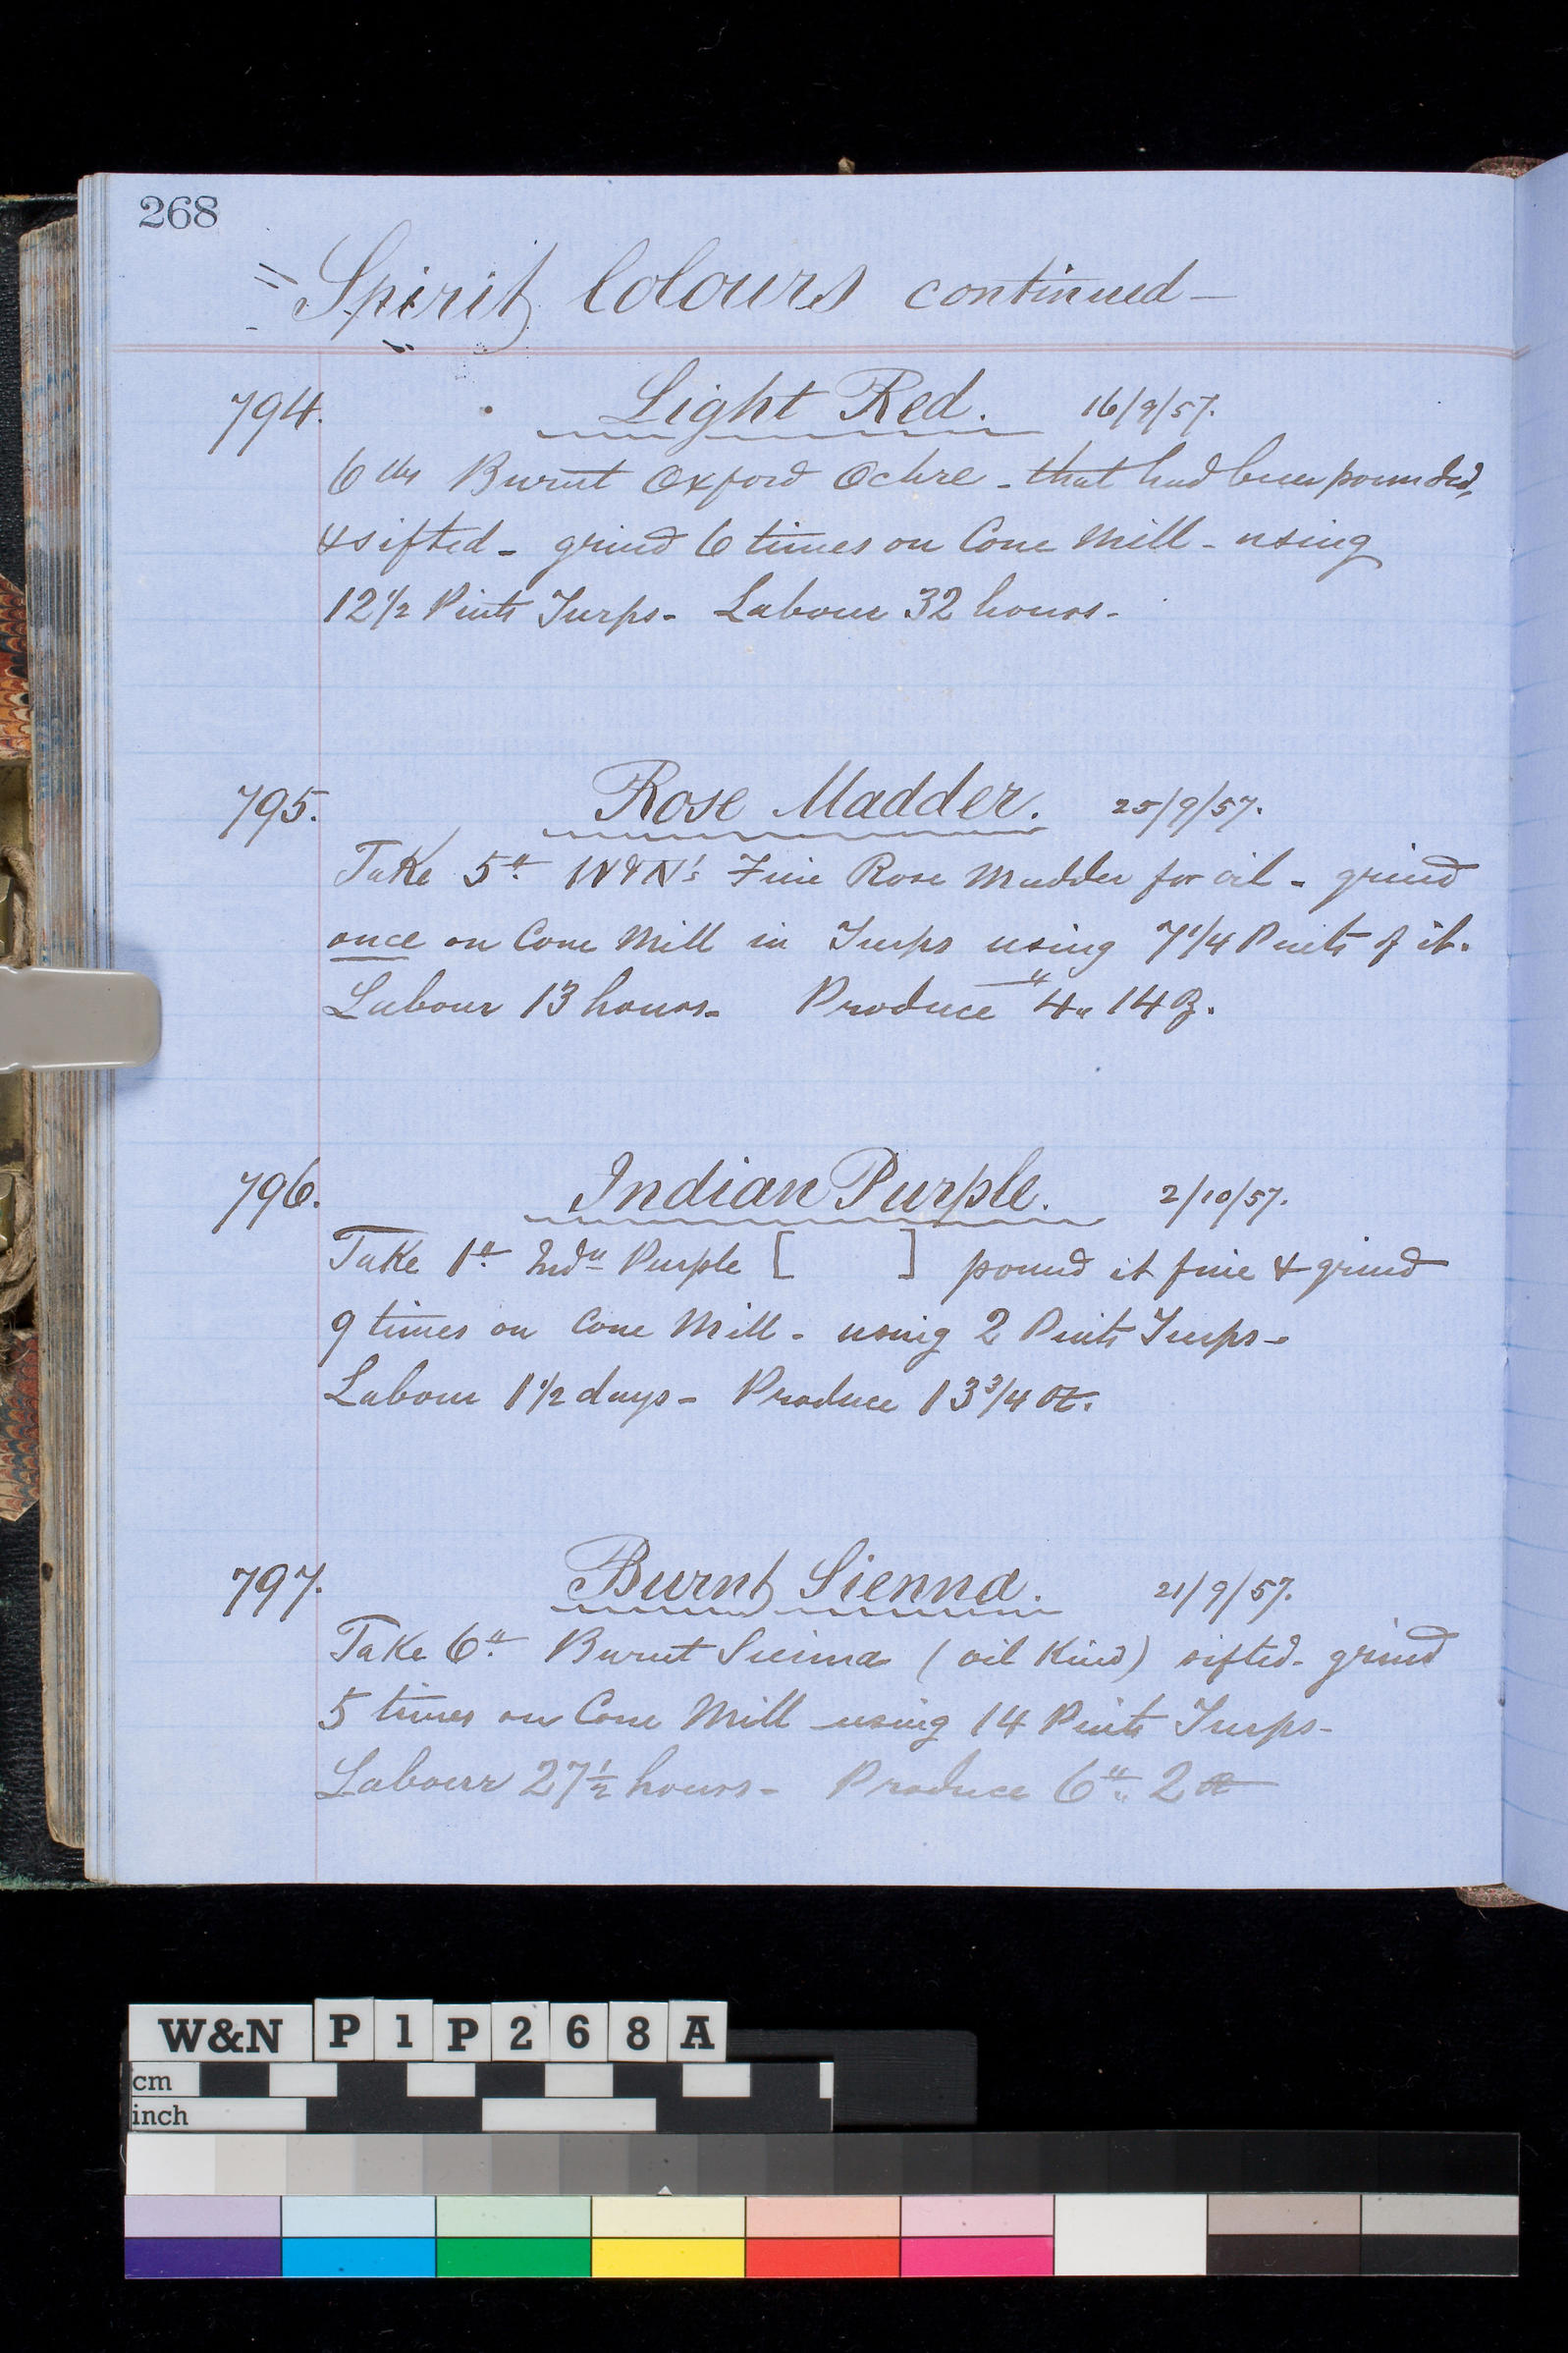 268
Spirit Colours continued —
794. Light Red. 16/9/57.
6 lbs Burnt Oxford Ochre - that had been pounded,
& sifted - grind 6 times on Cone Mill - using
12 1/2 Pints Turps - Labour 32 hours -
795. Rose Madder. 25/9/57.
Take 5 lb W&N's Fine Rose Madder for oil - grind
once on Cone Mill in Turps using 7 1/4 Pints of it.
Labour 13 hours - Produce 4 lb 14 oz.
796. Indian Purple. 2/10/57.
Take 1 lb Indn Purple [ ] pound it fine & grind
9 times on Cone Mill - using 2 Pints Turps -
Labour 1 1/2 days - Produce 13 3/4 oz.
797. Burnt Sienna. 21/9/57.
Take 6 lb Burnt Sienna (oil kind) sifted - grind
5 times on Cone Mill using 14 Pints Turps -
Labour 27 1/2 hours - Produce 6 lb 2 oz
W&N P1P268A
cm
inch